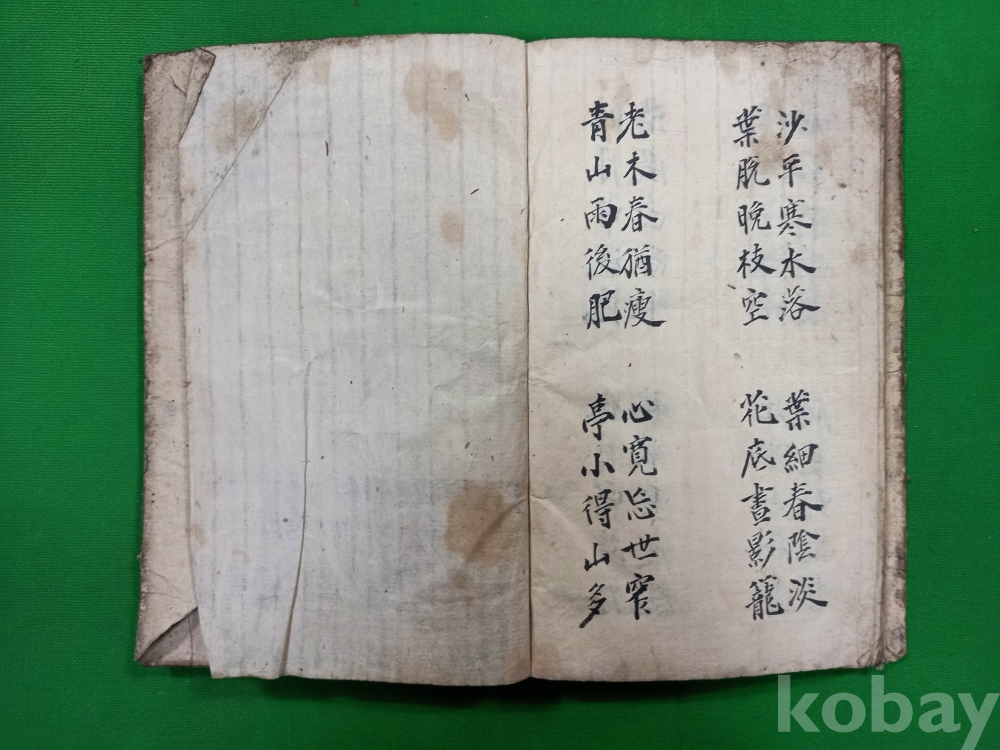 沙平寒水落
葉脫晚枝空
葉細春陰淡
花底晝影籠
老木春猶瘦
青山雨後肥
心寬忘世窄
亭小得山多
kobay